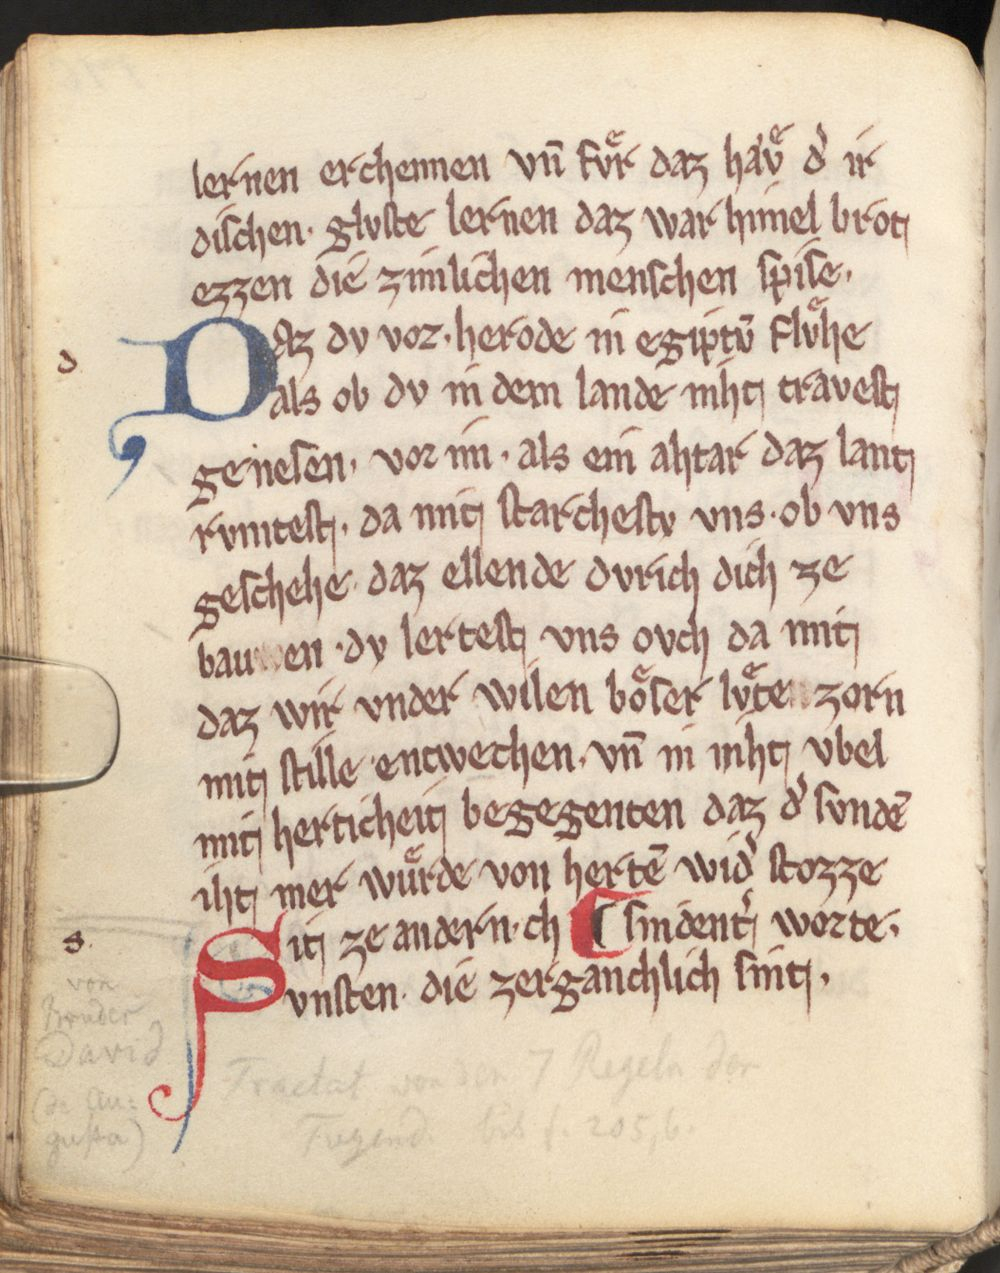 lernen erchennen vn̄ fvͤr daz haͮvͤ d' ir
dischen. glvste lernen daz war himel brot
ezzen die zimlichen menschen spise.
d
DAz dv vor. herode in egiptv̄ flvͤhe
als ob dv in dem lande niht travest
genesen. vor im. als ein ahtar daz lant
rvmtest. da mit starchestv vns. ob vns
geschehe. daz ellende dvrich dich ze
bauwen. dv lertest vns ovch da mit
daz wir vnder wilen boͤser lvͤte zorn
mit stille entwechen. vn̄ in niht vbel
mit herticheit begegenten daz d' svndē
iht mer wuͤrde von hertē wid' stozze
s.
Sit ze andern. ch C sindent' worte.
vnsten. die zerganchlich sint.
von
Bruder
David
(de Au:
gusta)
Tractat von den 7 Regeln der
Tugend. bis f. 205,b.